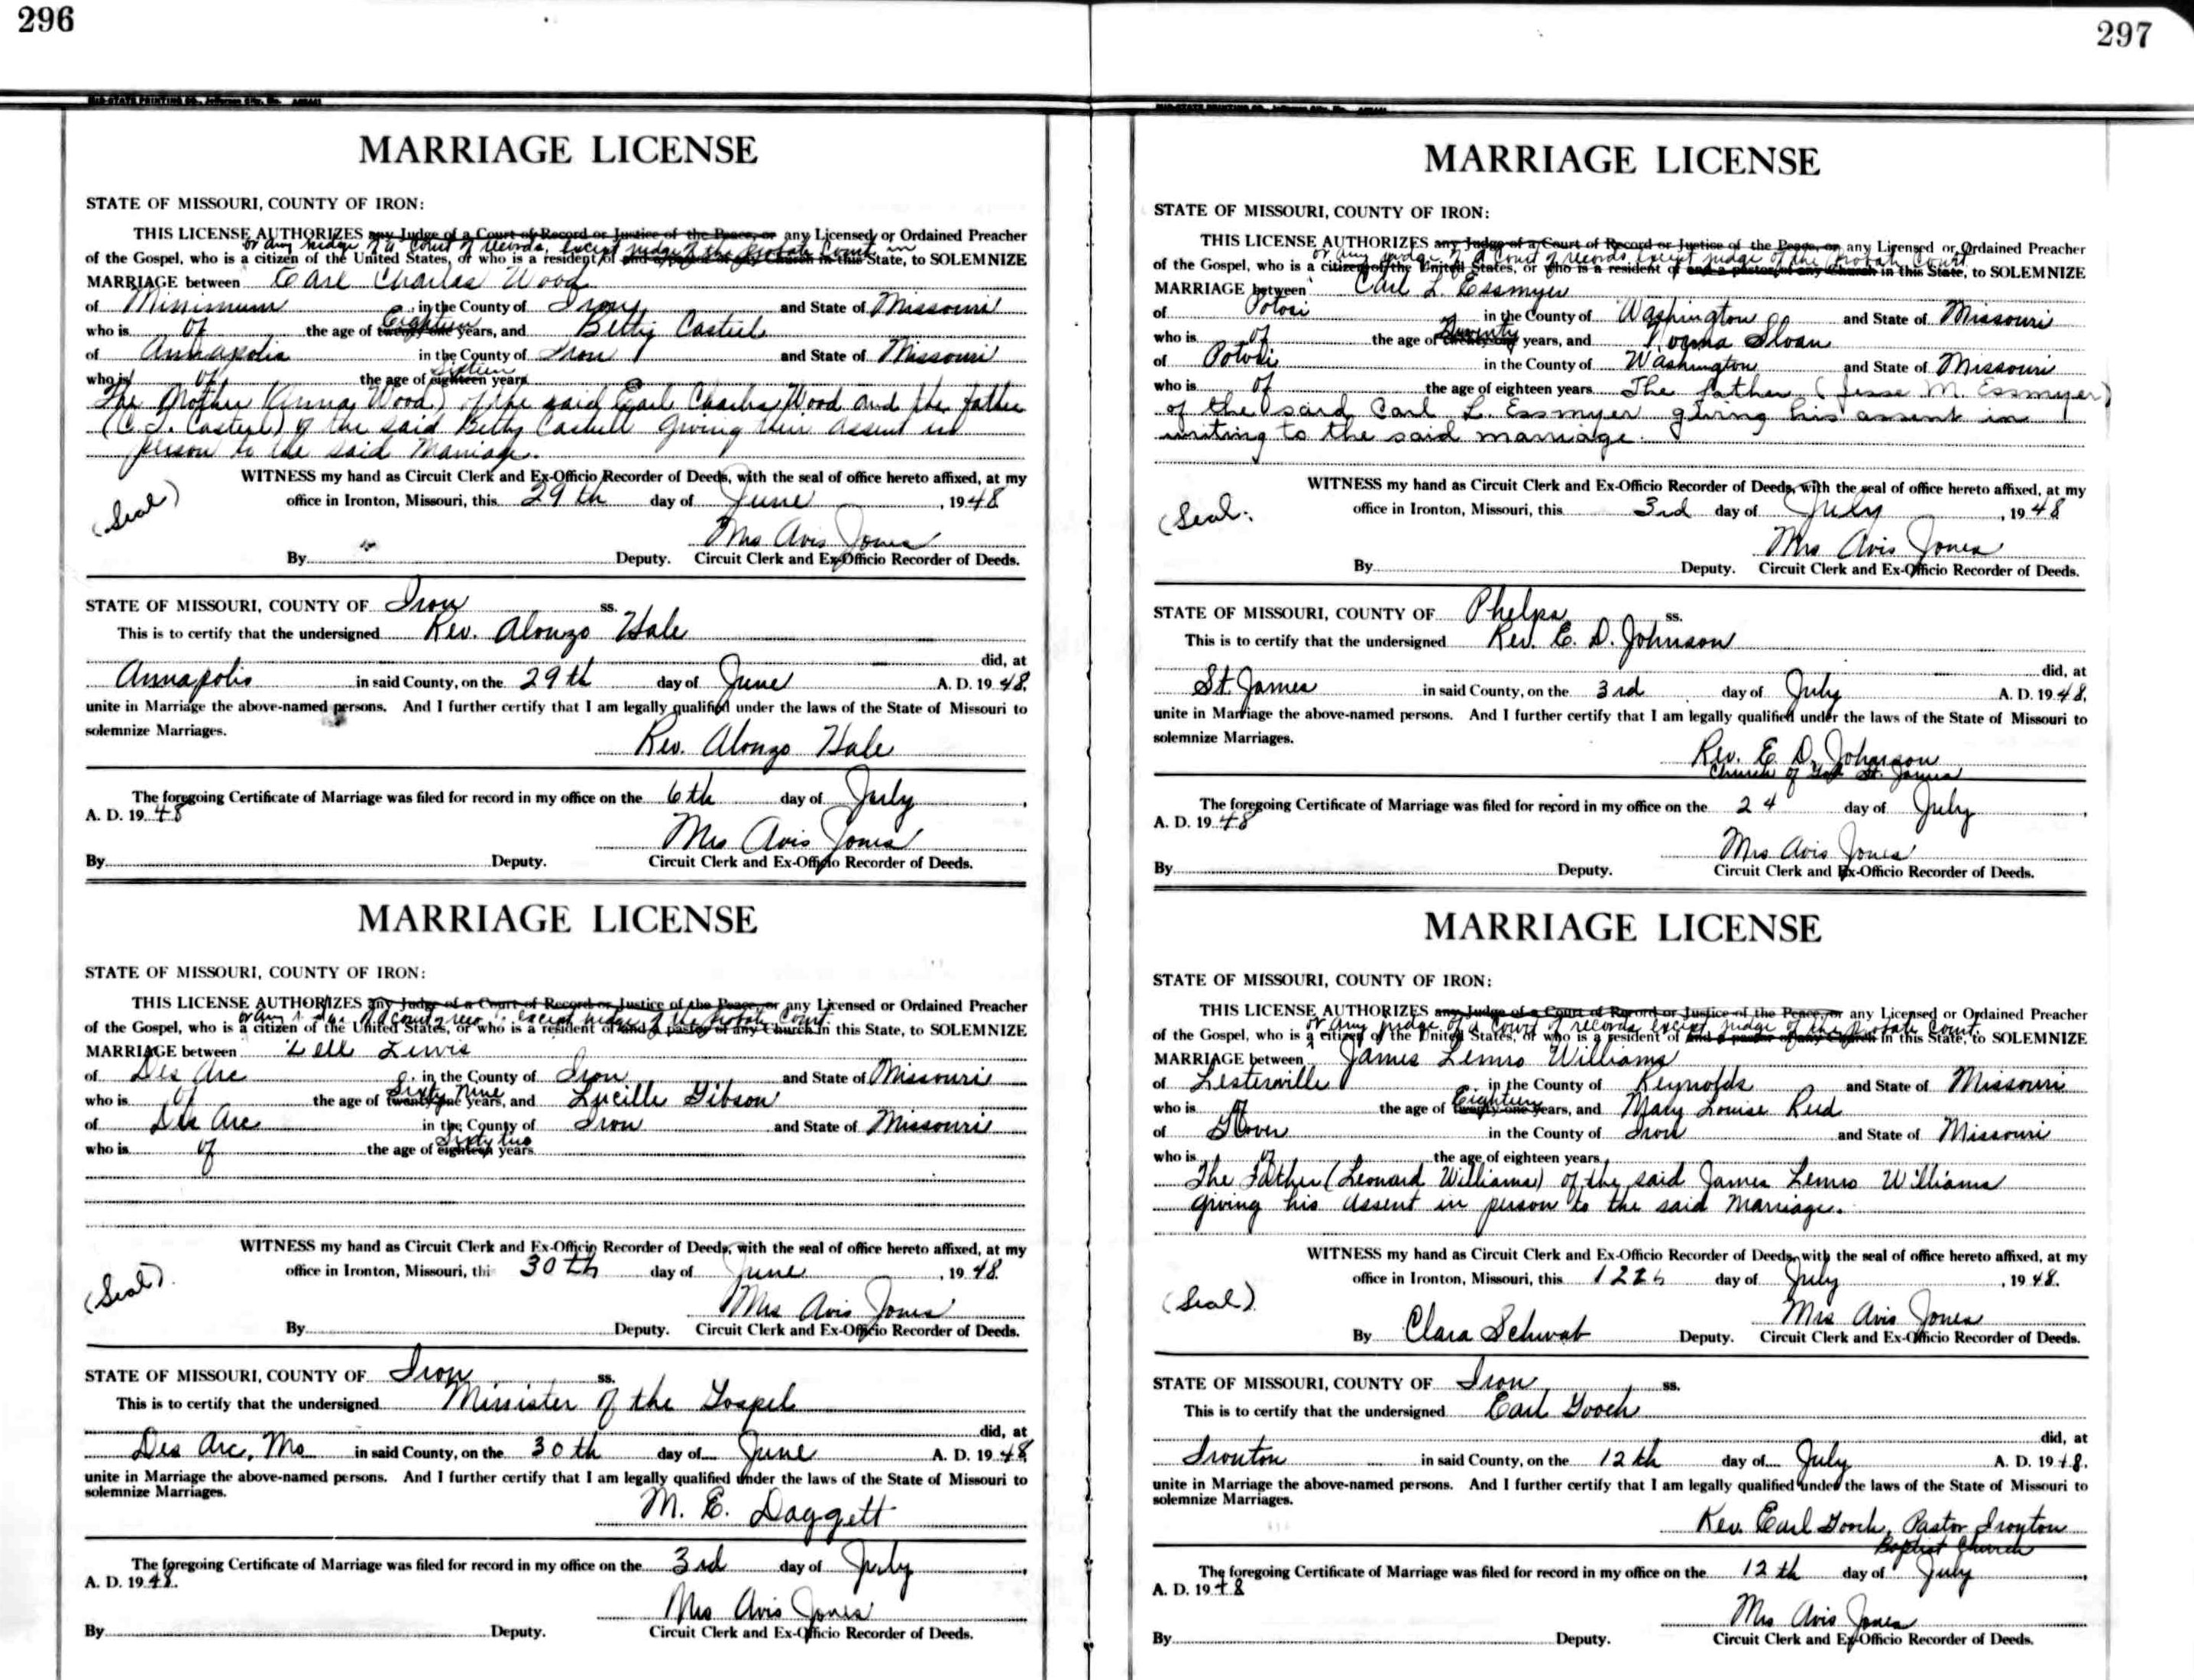 296
MARRIAGE LICENSE
STATE OF MISSOURI, COUNTY OF IRON:
THIS LICENSE AUTHORIZES any Judge of a Court of Record or Justice of the Peace, or any Licensed or Ordained Preacher
or any judge of a court of records, except judge of the probate Court in
of the Gospel, who is a citizen of the United States, or who is a resident of and a pastor of any Church in this State, to SOLEMNIZE
MARRIAGE between Earl Charles Wood
of Minimum in the County of Iron and State of Missouri
who is of the age of twenty-one Eighteen years, and Betty Casteel
of Annapolis in the County of Iron and State of Missouri
who is of the age of eighteen Sixteen years
The Mother (Anna Wood) of the said Earl Charles Wood and the father
(C. J. Casteel) of the said Betty Casteel giving their assent in
person to the said Marriage.
WITNESS my hand as Circuit Clerk and Ex-Officio Recorder of Deeds, with the seal of office hereto affixed, at my
(Seal) office in Ironton, Missouri, this 29th day of June, 1948
Mrs Avis Jones
By Deputy. Circuit Clerk and Ex-Officio Recorder of Deeds.
STATE OF MISSOURI, COUNTY OF Iron ss.
This is to certify that the undersigned Rev. Alonzo Hale
did, at
Annapolis in said County, on the 29th day of June A. D. 1948,
unite in Marriage the above-named persons. And I further certify that I am legally qualified under the laws of the State of Missouri to
solemnize Marriages.
Rev. Alonzo Hale
The foregoing Certificate of Marriage was filed for record in my office on the 6th day of July,
A. D. 1948
Mrs Avis Jones
By Deputy. Circuit Clerk and Ex-Officio Recorder of Deeds.
MARRIAGE LICENSE
STATE OF MISSOURI, COUNTY OF IRON:
THIS LICENSE AUTHORIZES any Judge of a Court of Record or Justice of the Peace, or any Licensed or Ordained Preacher
or any judge of a court of records except judge of the probate Court
of the Gospel, who is a citizen of the United States, or who is a resident of and a pastor of any Church in this State, to SOLEMNIZE
MARRIAGE between Zell Lewis
of Des Arc in the County of Iron and State of Missouri
who is of the age of twenty-one Sixty Nine years, and Lucille Gibson
of Des Arc in the County of Iron and State of Missouri
who is of the age of eighteen Sixty two years
WITNESS my hand as Circuit Clerk and Ex-Officio Recorder of Deeds, with the seal of office hereto affixed, at my
(Seal) office in Ironton, Missouri, thi 30th day of June, 1948.
Mrs Avis Jones
By Deputy. Circuit Clerk and Ex-Officio Recorder of Deeds.
STATE OF MISSOURI, COUNTY OF Iron ss.
This is to certify that the undersigned Minister of the Gospel
did, at
Des Arc, Mo in said County, on the 30th day of June A. D. 1948
unite in Marriage the above-named persons. And I further certify that I am legally qualified under the laws of the State of Missouri to
solemnize Marriages.
M. E. Daggett
The foregoing Certificate of Marriage was filed for record in my office on the 3rd day of July,
A. D. 1948.
Mrs Avis Jones
By Deputy. Circuit Clerk and Ex-Officio Recorder of Deeds.
297
MARRIAGE LICENSE
STATE OF MISSOURI, COUNTY OF IRON:
THIS LICENSE AUTHORIZES any Judge of a Court of Record or Justice of the Peace, or any Licensed or Ordained Preacher
or any judge of a court of records except judge of the probate Court
of the Gospel, who is a citizen of the United States, or who is a resident of and a pastor of any Church in this State, to SOLEMNIZE
MARRIAGE between Carl L. Essmyer
of Potosi in the County of Washington and State of Missouri
who is of the age of twenty-one Twenty years, and Norma Sloan
of Potosi in the County of Washington and State of Missouri
who is of the age of eighteen years The father (Jesse M. Essmyer)
of the said Carl L. Essmyer giving his assent in
writing to the said marriage.
WITNESS my hand as Circuit Clerk and Ex-Officio Recorder of Deeds, with the seal of office hereto affixed, at my
(Seal. office in Ironton, Missouri, this 3rd day of July, 1948
Mrs Avis Jones
By Deputy. Circuit Clerk and Ex-Officio Recorder of Deeds.
STATE OF MISSOURI, COUNTY OF Phelps ss.
This is to certify that the undersigned Rev. E. D. Johnson
did, at
St. James in said County, on the 3rd day of July A. D. 1948,
unite in Marriage the above-named persons. And I further certify that I am legally qualified under the laws of the State of Missouri to
solemnize Marriages.
Rev. E. D. Johnson
Church of God St. James
The foregoing Certificate of Marriage was filed for record in my office on the 24 day of July,
A. D. 1948
Mrs Avis Jones
By Deputy. Circuit Clerk and Ex-Officio Recorder of Deeds.
MARRIAGE LICENSE
STATE OF MISSOURI, COUNTY OF IRON:
THIS LICENSE AUTHORIZES any Judge of a Court of Record or Justice of the Peace, or any Licensed or Ordained Preacher
or any judge of a court of records except judge of the probate Court
of the Gospel, who is a citizen of the United States, or who is a resident of and a pastor of any Church in this State, to SOLEMNIZE
MARRIAGE between James Lemro Williams
of Lesterville in the County of Reynolds and State of Missouri
who is of the age of twenty-one Eighteen years, and Mary Louise Reed
of Glover in the County of Iron and State of Missouri
who is of the age of eighteen years
The Father (Leonard Williams) of the said James Lemro Williams
giving his assent in person to the said Marriage.
WITNESS my hand as Circuit Clerk and Ex-Officio Recorder of Deeds, with the seal of office hereto affixed, at my
(Seal) office in Ironton, Missouri, this 12th day of July, 1948.
Mrs Avis Jones
By Clara Schwab Deputy. Circuit Clerk and Ex-Officio Recorder of Deeds.
STATE OF MISSOURI, COUNTY OF Iron ss.
This is to certify that the undersigned Earl Gooch
did, at
Ironton in said County, on the 12th day of July A. D. 1948.
unite in Marriage the above-named persons. And I further certify that I am legally qualified under the laws of the State of Missouri to
solemnize Marriages.
Rev. Earl Gooch, Pastor Ironton
Baptist Church
The foregoing Certificate of Marriage was filed for record in my office on the 12th day of July,
A. D. 1948
Mrs Avis Jones
By Deputy. Circuit Clerk and Ex-Officio Recorder of Deeds.